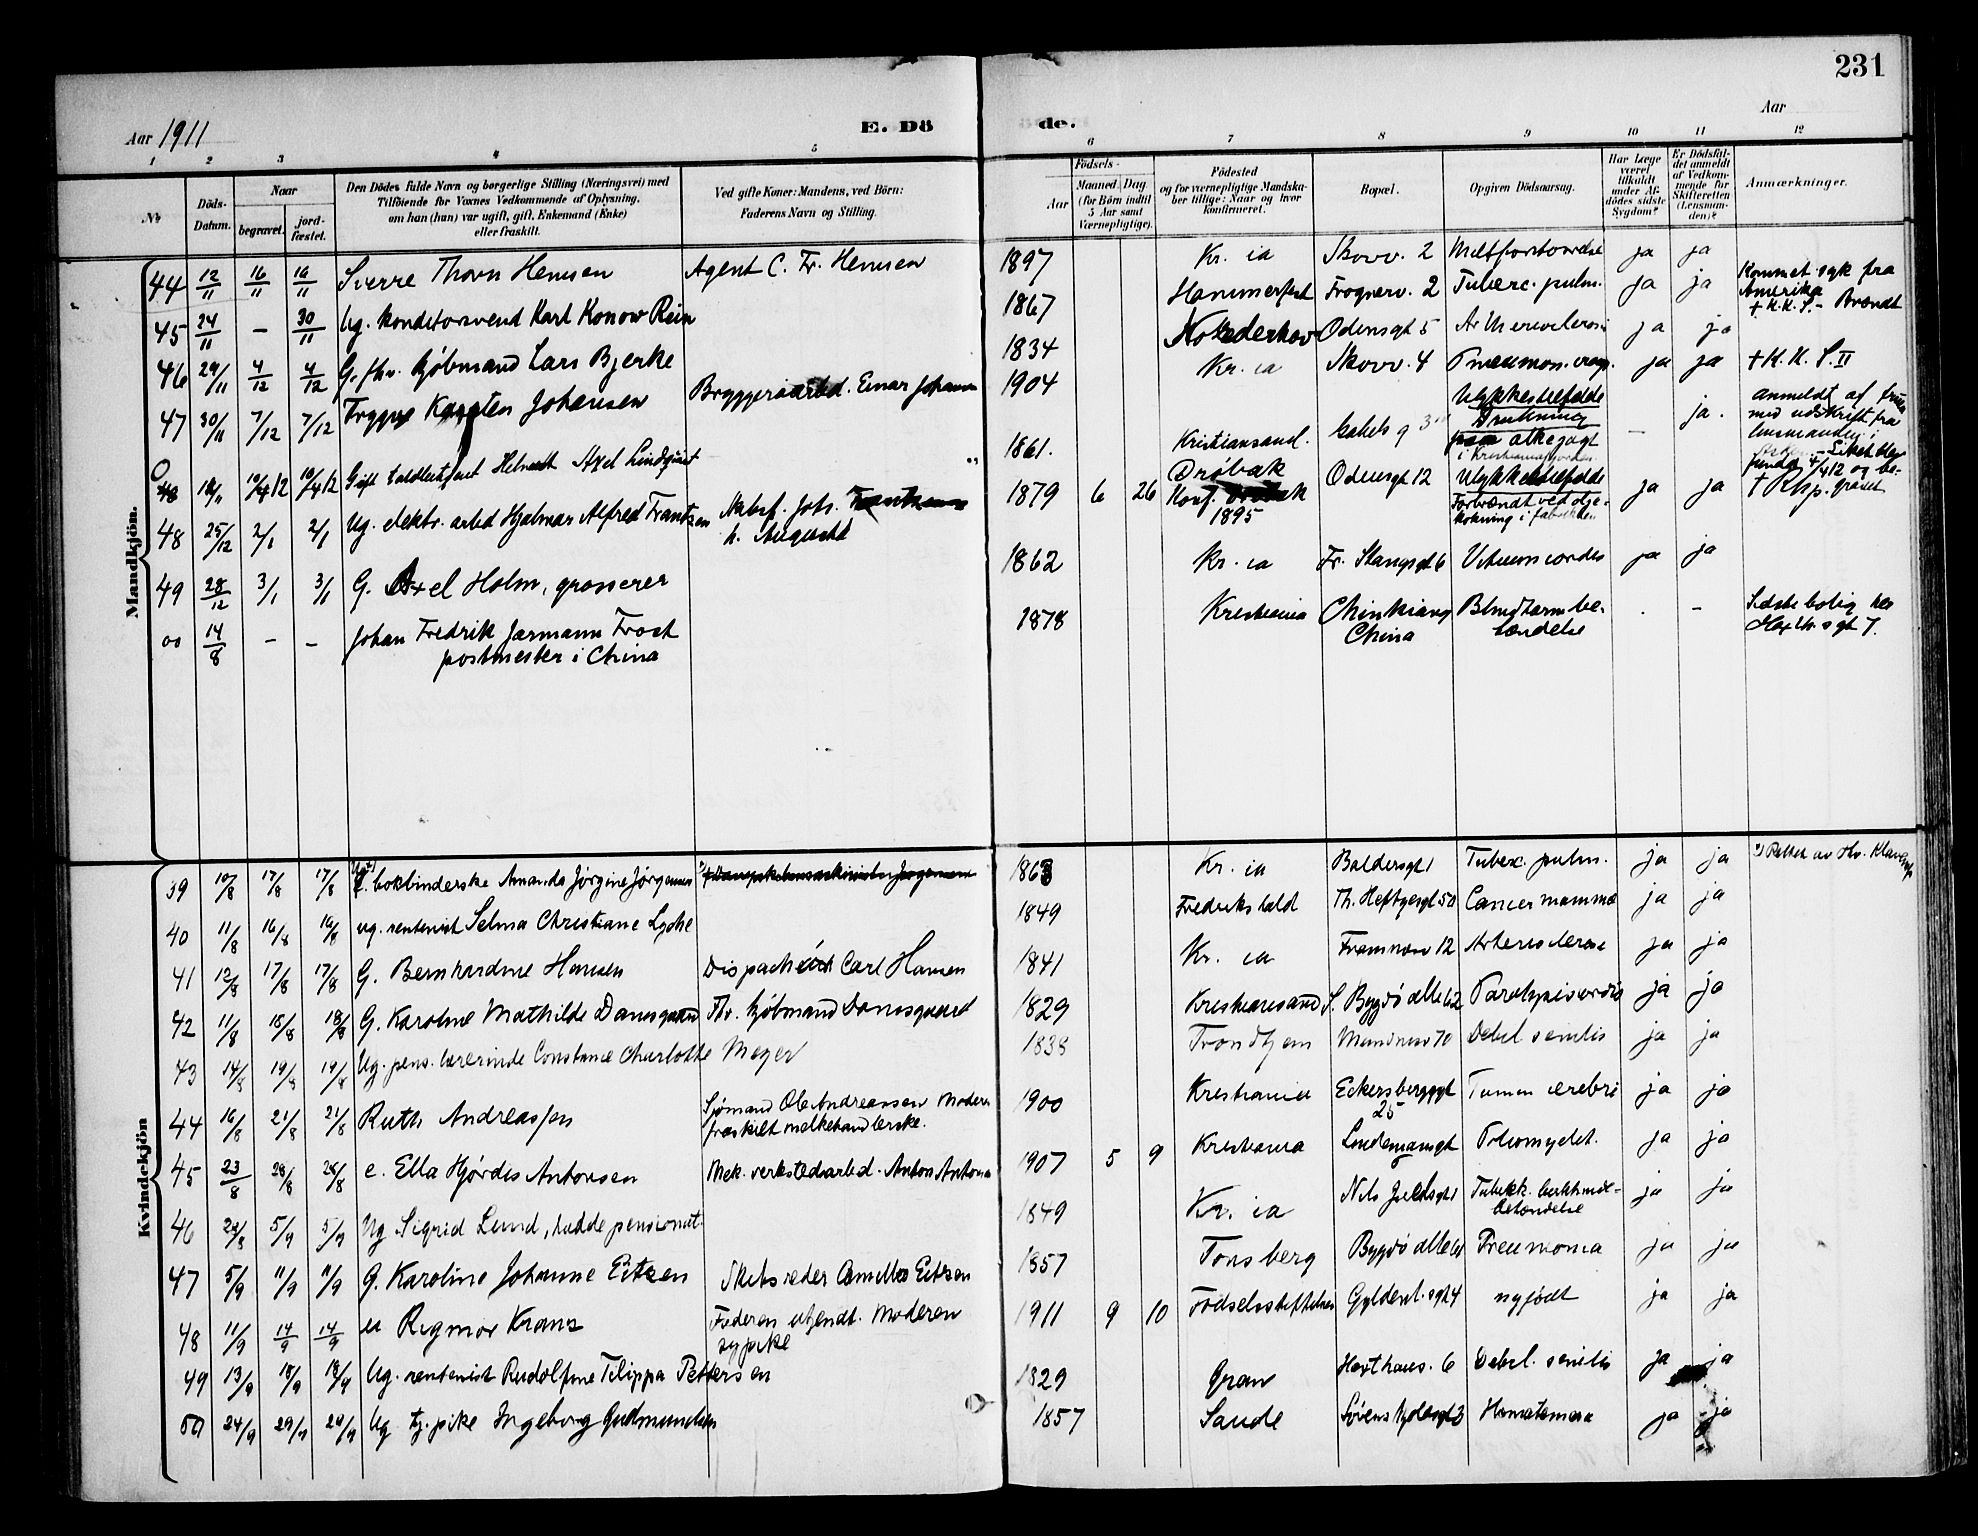 231
Aar 1911
E. Dö
de.
Aar
1 2 3 4 5 6 7 8 9 10 11 12
No
Döds-
Datum.
Naar
begravet.
jord-
fæstet.
Den Dödes fulde Navn og borgerlige Stilling (Næringsvei) med
Tilföiende for Voxnes Vedkommende af Oplysning,
om han (hun) var ugift, gift, Enkemand (Enke)
eller fraskilt.
Ved gifte Koner: Mandens, ved Börn:
Faderens Navn og Stilling.
Födsels-
Aar
Maaned. Dag.
(for Börn indtil
5 Aar samt
Værnepligtige).
Födested
og for værnepligtige Mandska-
ber tillige: Naar og hvor
konfirmeret.
Bopæl.
Opgiven Dödsaarsag.
Har Læge
været
tilkaldt
under Af-
dödes sidste
Sygdom?
Er Dödsfal-
det anmeldt
af Vedkom-
mende for
Skifteretten
(Lensman-
den)?
Anmærkninger.
Mandkjön.
44 12/11 16/11 16/11 Sverre Thorn Hemsen Agent C. Fr. Hemsen 1897 Kr. ia Skovv. 2 ja ja
45 24/11 - 30/11 Ug. konditorsvend Karl Konow Rein 1867 Hammerfest Frognerv. 2 Tuberc. pulm. ja ja Kommet syk fra
Amerika
+ K. K. S. - Brændt
46 29/11 4/12 4/12 G. fhv. kjöbmand Lars Bjerke 1834 Odensgt 5 ja ja
47 30/11 7/12 7/12 Trygve Karsten Johansen Bryggeriarbed. Einar Johansen 1904 Kr. ia Skovv. 4 Pneumon. ja ja + K. K. S. II
Gift Helmuth Axel Lindquist 1861. Kristiansand. Ulykkestilfælde
Drukning
paa alkejagt
i Kristianiafjorden
- ja. anmeldt af
med udskrift fra
lensmanden i
- Liket blev
fundet 4/4 12 og be-
gravet
48 25/12 2/1 2/1 Ug. elektr. arbed Hjalmar Alfred Frantzen Joh.
h. Auguste
1879 6 26 Drøbak
Konf.
1895
Odensgt 12 Ulykkestilfælde
Forbrændt ved olje-
kokning i fabrikken
ja ja
49 28/12 3/1 3/1 G. Axel Holm, grosserer 1862 Kr. ia Fr. Stangsgt 6 Vitium cordis ja ja
00 14/8 - - Johan Fredrik Jarmann Frost
postmester i China
1878 Kristiania Chinkiang
China
Blindtarmbe-
tændelse
. - Sidste bolig her
7.
Kvindekjön
39 10/8 17/8 17/8 bokbinderske Amanda Jørgine Jørgensen 1863 Kr. ia Baldersgt 1 Tuberc. pulm. ja ja Rettet av
40 11/8 16/8 16/8 ug. rentenist Selma Christiane Lyche 1849 Fredrikshald Th. Heftyesgt 50 Cancer mammæ ja ja
41 12/8 17/8 17/8 G. Bernhardine Hansen Dispachør Carl Hansen 1841 Kr. ia Framnesv 12 ja ja
42 11/8 18/8 18/8 G. Karoline Mathilde Danesquard Fhv. kjöbmand Danesquard 1829 Kristiansand S. Bygdö alle 62 Paralysis cordis ja ja
43 14/8 19/8 19/8 Ug. pens. lærerinde Constance Charlotte Meyer 1838 Trondhjem 70 Debil. senilis ja ja
44 16/8 21/8 21/8 Ruth Andreassen Sjömand Ole Andreassen Moderen
fraskilt melkehandlerske.
1900 Kristiania Eckersbergsgt
25
Tumor cerebri ja ja
45 23/8 28/8 28/8 e. Ella Hjørdis Antonsen Mek. verkstedsarbd. Anton Antonsen 1907 5 9 Kristiania Lindemansgt Poliomyelit. ja ja
46 29/8 5/9 5/9 Ug Sigrid Lund, hadde pensionat. 1849 Kr. ia Nils Juelsgt 1 Tuberk.
betændelse
ja ja
47 5/9 11/9 11/9 G. Karoline Johanne Eitzen Skibsreder Camillo Eitzen 1857 Tønsberg Bygdö alle Pneumonia ja ja
48 11/9 14/9 14/9 u Rigmor Krans Faderen utjendt. Moderen
sypike
1911 9 10 Födselsstiftelsen Gyldenl. sgt 4 nyfödt ja ja
49 13/9 18/9 18/9 Ug. rentenist Rudolfine Filippa Pettersen 1829 Gran Havthaus. 6 Debil. senilis ja ja
50 24/9 29/9 29/9 Ug tj. pike Ingeborg Gudmundsen 1857 Sande Hæmatemese ja ja